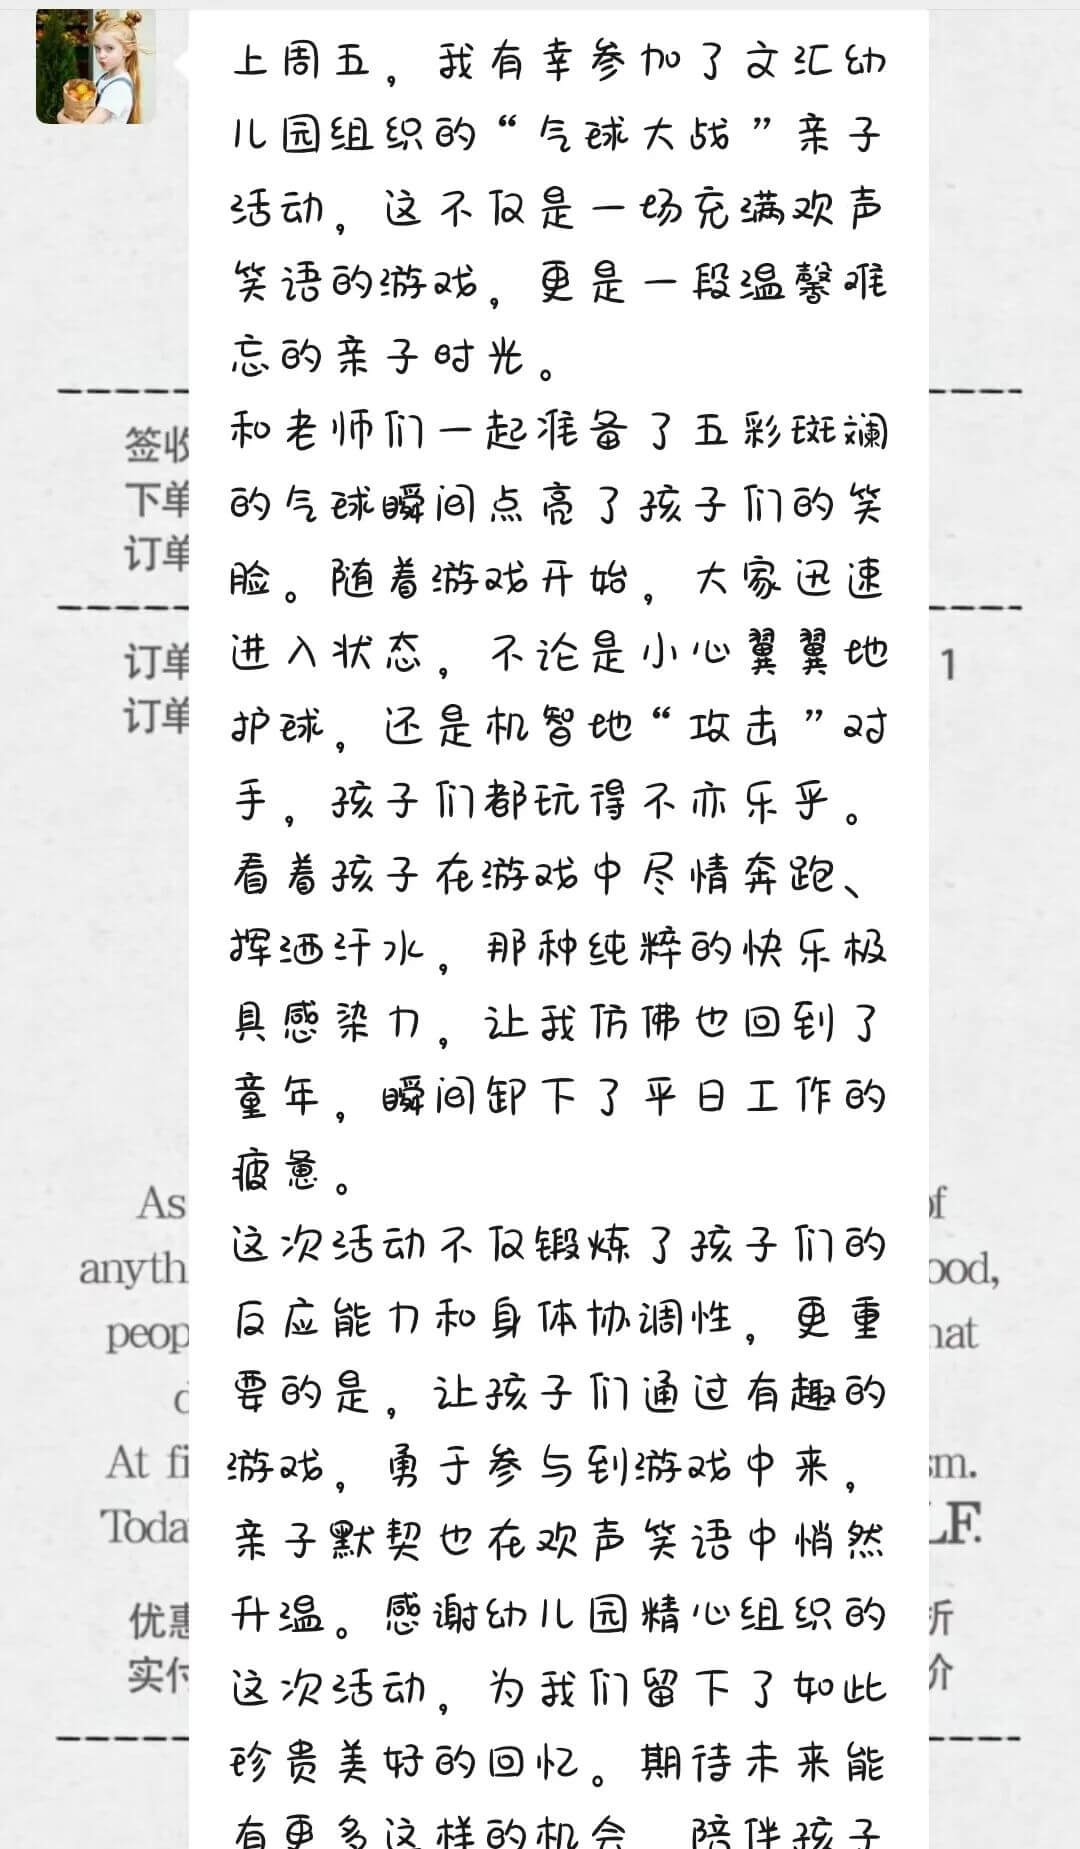 上周五，我有幸参加了文汇幼
儿园组织的“气球大战”亲子
活动，这不仅是一场充满欢声
笑语的游戏，更是一段温馨难
忘的亲子时光。
和老师们一起准备了五彩斑斓
的气球瞬间点亮了孩子们的笑
脸。随着游戏开始，大家迅速
进入状态，不论是小心翼翼地
护球，还是机智地“攻击”对
手，孩子们都玩得不亦乐乎。
看着孩子在游戏中尽情奔跑、
挥洒汗水，那种纯粹的快乐极
具感染力，让我仿佛也回到了
童年，瞬间卸下了平日工作的
疲惫。
这次活动不仅锻炼了孩子们的
反应能力和身体协调性，更重
要的是，让孩子们通过有趣的
游戏，勇于参与到游戏中来，
亲子默契也在欢声笑语中悄然
升温。感谢幼儿园精心组织的
这次活动，为我们留下了如此
珍贵美好的回忆。期待未来能
有更多这样的机会，陪伴孩子
签收
下单
订单
订单 1
订单
As of
anyth ood,
peop hat
At fi sm.
Toda LF.
优惠 折
实付 价